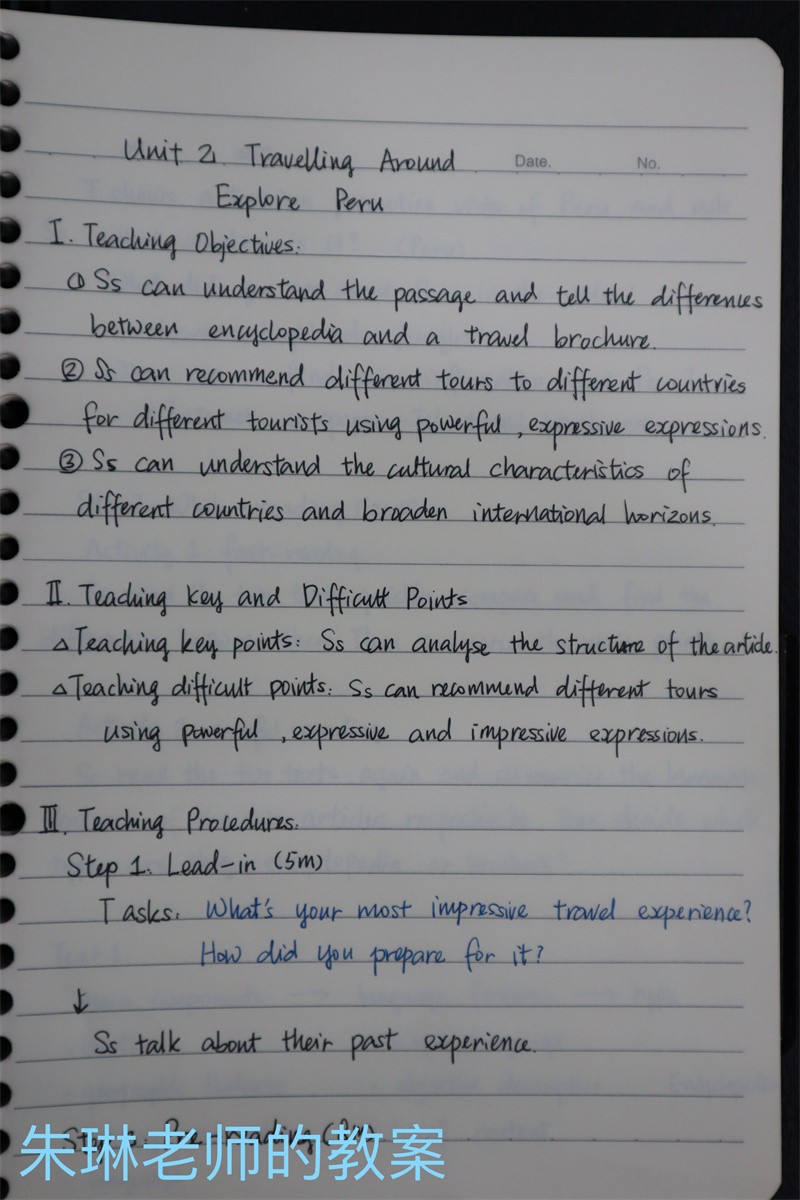 Unit 2 Travelling Around
Date. No.
Explore Peru
I. Teaching Objectives:
① Ss can understand the passage and tell the differences
between encyclopedia and a travel brochure.
② Ss can recommend different tours to different countries
for different tourists using powerful, expressive expressions.
③ Ss can understand the cultural characteristics of
different countries and broaden international horizons.
II. Teaching Key and Difficult Points
△ Teaching key points: Ss can analyse the structure of the article.
△ Teaching difficult points: Ss can recommend different tours
using powerful, expressive and impressive expressions.
III. Teaching Procedures:
Step 1. Lead-in (5m)
Tasks: What's your most impressive travel experience?
How did you prepare for it?
↓
Ss talk about their past experience.
Step Pre-reading
朱琳老师的教案